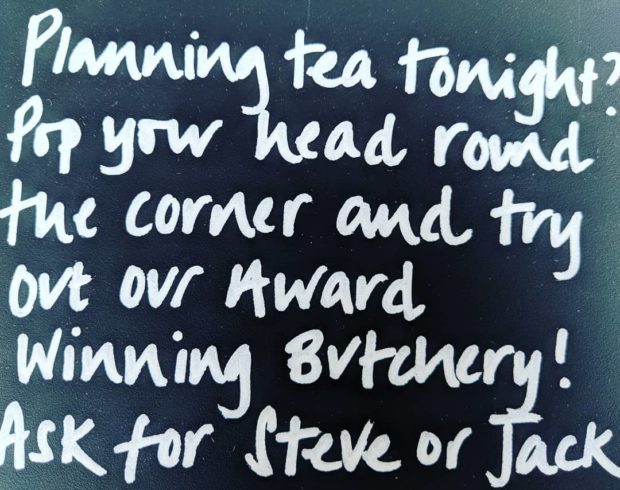 Planning tea tonight?
Pop your head round
the corner and try
out our Award
Winning Butchery!
Ask for Steve or Jack